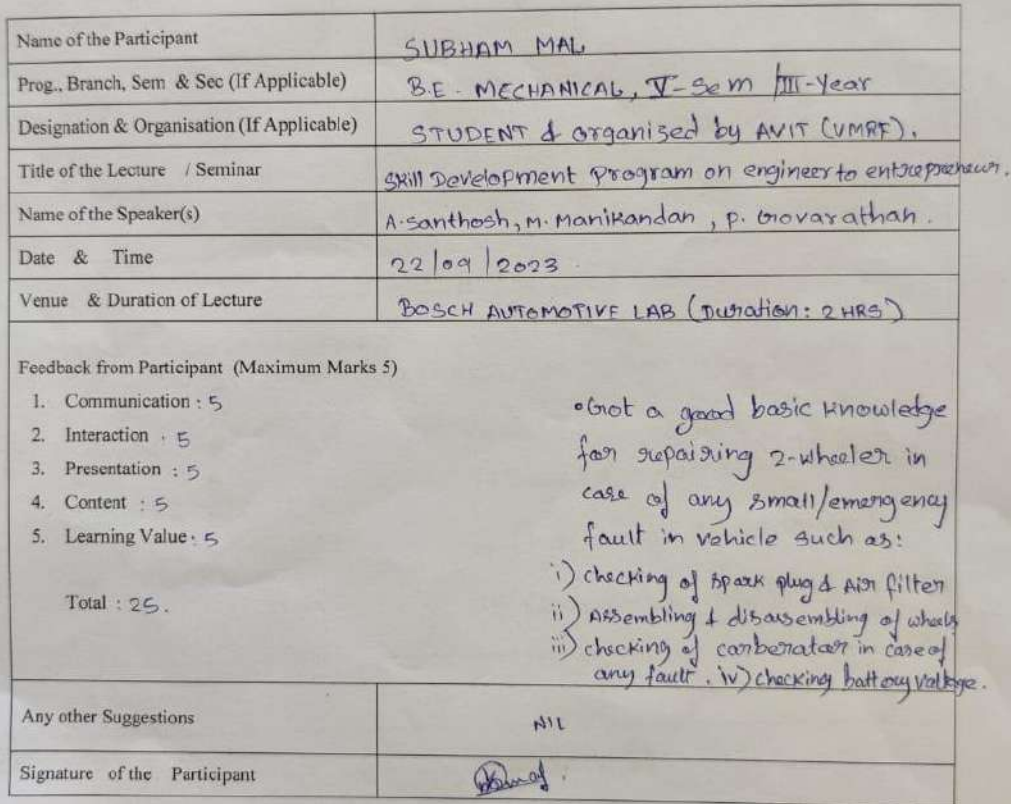 Name of the Participant SUBHAM MAL
Prog., Branch, Sem & Sec (If Applicable) B.E - MECHANICAL, V-Sem /III-Year
Designation & Organisation (If Applicable) STUDENT & organised by AVIT (VMRF).
Title of the Lecture / Seminar Skill Development Program on engineer to entrepreneur.
Name of the Speaker(s) A. Santhosh, M. Manikandan, P. Govarathan.
Date & Time 22/09/2023
Venue & Duration of Lecture BOSCH AUTOMOTIVE LAB (Duration: 2 HRS)
Feedback from Participant (Maximum Marks 5)
1. Communication : 5
2. Interaction : 5
3. Presentation : 5
4. Content : 5
5. Learning Value : 5
Total : 25.
• Got a good basic knowledge
for repairing 2-wheeler in
case of any small/emergency
fault in vehicle such as:
i) checking of spark plug & Air filter
ii) Assembling & disassembling of wheels
iii) checking of carberatar in case of
any fault. iv) checking battery valtage.
Any other Suggestions NIL
Signature of the Participant